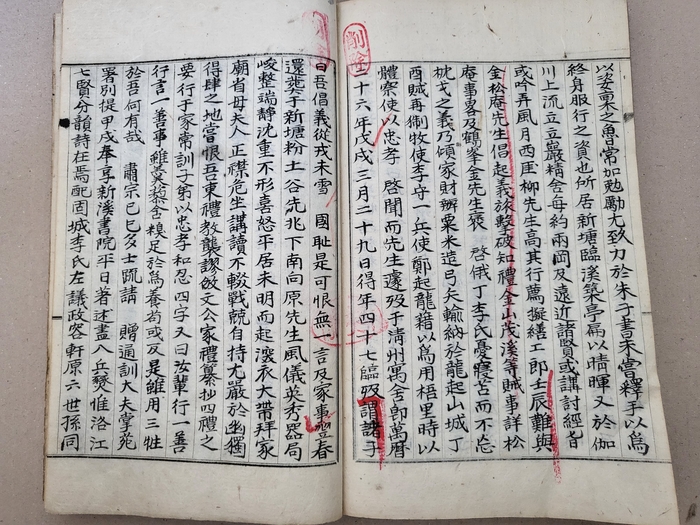 以姿稟之魯常加勉勵尤致力於朱子書未嘗釋手以爲
終身服行之資也所居新塘臨溪築亭扁以晴暉又於伽
川上流立立巖精舍每約兩岡及遠近諸賢或講討經旨
或吟弄風月西厓柳先生高其行薦擬繕工郎壬辰難與
金松庵先生倡起義旅擊破知禮金山茂溪等賊事詳松
庵事畧及鶴峯金先生褒 啓俄丁李氏憂寢苫而不忘
枕戈之義乃傾家財辦粟米造弓矢輸納於龍起山城丁
酉賊再
制牧使李守一兵使鄭起龍藉以爲用梧里時以
體察使以忠孝 啓聞而先生遽歿于淸州寓舍卽萬曆
二十六年戊戌三月二十九日得年四十七臨歿謂諸子
曰吾倡義從戎未雪 國耻是可恨無 言及家事翌春
還葬于新塘粉土谷先兆下南向原先生風儀英秀器局
峻整端靜沈重不形喜怒平居未明而起濅衣大帶拜家
廟省母夫人正襟危坐講讀不輟戰兢自持尤嚴於幽獨
得肆之地嘗恨吾東禮敎襲謬倣文公家禮纂抄四禮之
要行于家常訓子弟以忠孝和忍四字又曰汝輩行一善
行言一善事雖羹藜舍糗足於爲養苟或反是雖用三牲
於吾何有哉 肅宗己巳多士䟽請 贈通訓大夫掌苑
署別提甲戌奉享新溪書院平日著述盡入兵燹惟洛江
七賢分韻詩在焉配固城李氏左議政容軒原六世孫同
削除